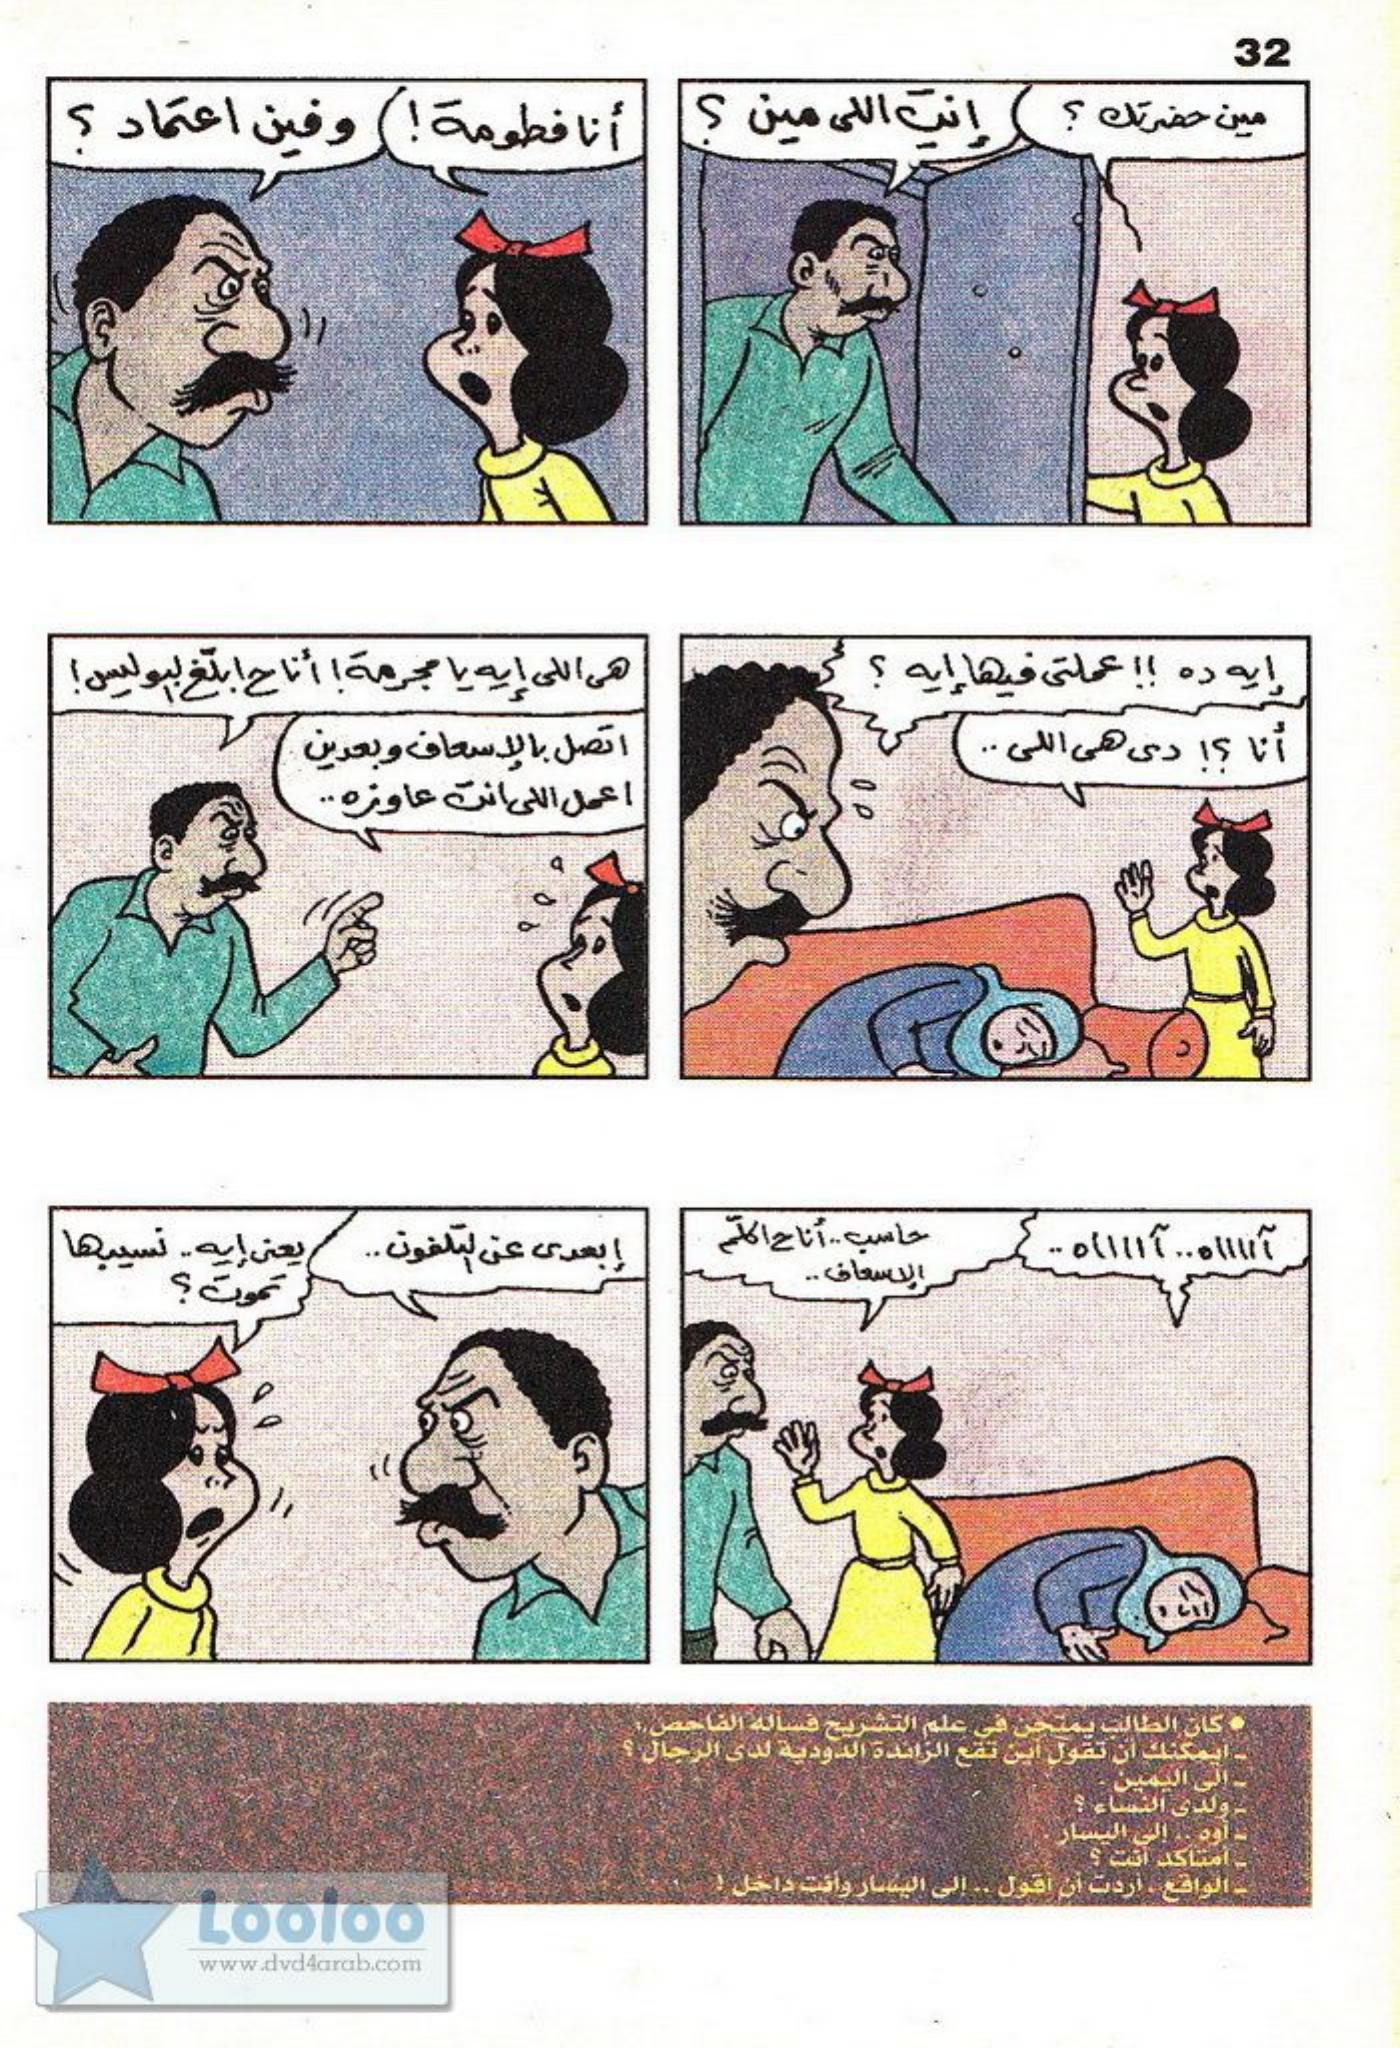 32
مين حضرتك ؟
إنتِ اللى مين ؟
أنا فطومة !
وفين اعتماد ؟
إيه ده !! عملتى فيها إيه ؟
أنا ؟! دى هى اللى ..
هى اللى إيه يا مجرمة ! أنا ح ابلّغ البوليس !
اتصل بالإسعاف وبعدين
اعمل اللى انت عاوزه ..
آااااه .. آااااه ..
حاسب .. أنا ح اكلّم
الإسعاف ..
إبعدى عن التلفون ..
يعنى إيه .. نسيبها
تموت ؟
• كان الطالب يمتحن في علم التشريح فسأله الفاحص :
ـ أيمكنك أن تقول أين تقع الزائدة الدودية لدى الرجال ؟
ـ الى اليمين .
ـ ولدى النساء ؟
ـ أوه .. إلى اليسار .
ـ أمتأكد أنت ؟
ـ الواقع ، أردت أن أقول .. إلى اليسار وأنت داخل !
Looloo
www.dvd4arab.com